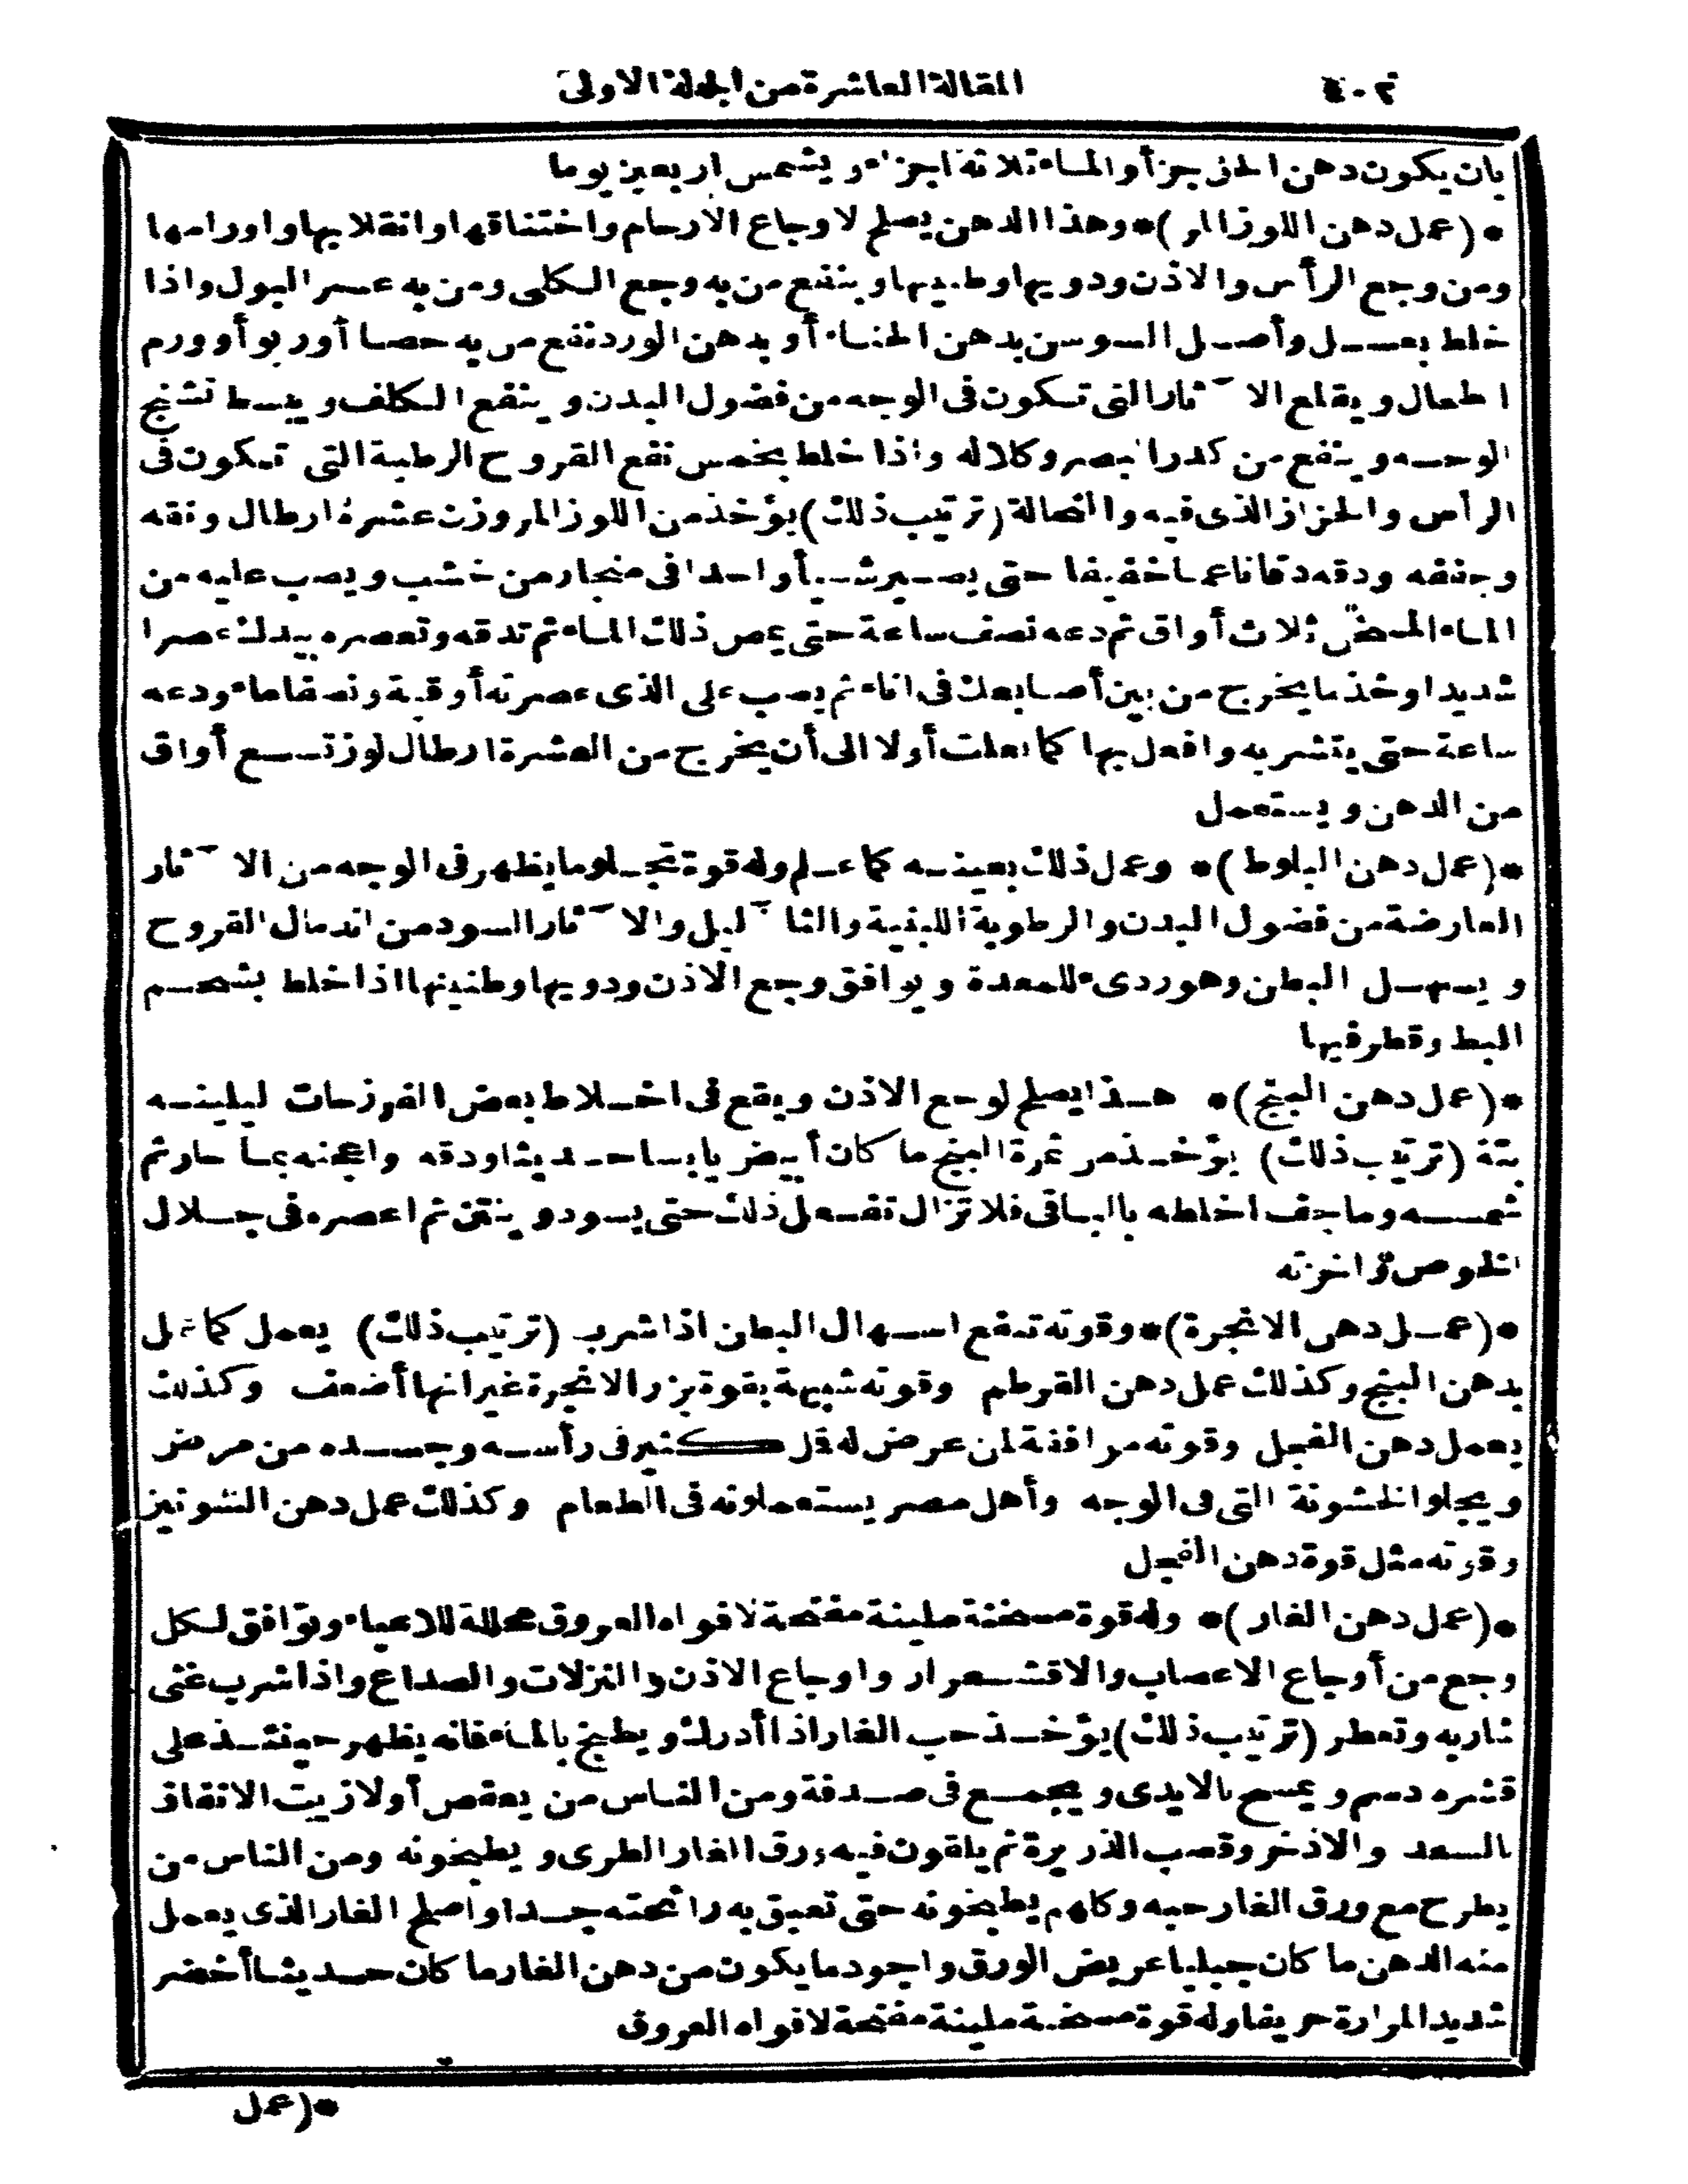 ٤٠٢ المقالة العاشرة من الجملة الاولى
بان يكون دهن الخل جزأ والماء ثلاثة اجزاء ويشمس اربعين يوما
*(عمل دهن اللوز المر)* وهذا الدهن يصلح لاوجاع الأرحام واختناقها وانقلابها واورامها
ومن وجع الرأس والاذن ودويها وطنينها وينفع من به وجع الكلى ومن به عسر البول واذا
خلط بعسل وأصل السوسن بدهن الحناء أو بدهن الورد نفع من به حصا أو ربو أو ورم
الطحال ويقلع الآثار التى تكون فى الوجه من فضول البدن وينفع الكلف ويبسط تشنج
الوجه وينفع من كدر البصر وكلاله واذا خلط بخمر نفع القروح الرطبة التى تكون فى
الرأس والحزاز الذى فيه والنخالة (ترتيب ذلك) يؤخذ من اللوز المر وزن عشرة ارطال ونقه
وجففه ودقه دقا ناعما خفيفا حتى يصير شيأ واحدا فى منجار من خشب ويصب عليه من
الماء المسخن ثلاث أواق ثم دعه نصف ساعة حتى يمص ذلك الماء ثم تدقه وتعصره بيدك عصرا
شديدا وخذ ما يخرج من بين أصابعك فى اناء ثم يصب على الذى عصرته أوقية ونصفا ماء ودعه
ساعة حتى يتشربه وافعل بها كما فعلت أولا الى أن يخرج من العشرة ارطال لوز تسع أواق
من الدهن ويستعمل
*(عمل دهن البلوط)* وعمل ذلك بعينه كما علم وله قوة تجلو ما يظهر فى الوجه من الآثار
العارضة من فضول البدن والرطوبة اللبنية والثآليل والآثار السود من اندمال القروح
ويسهل البطن وهو ردىء للمعدة ويوافق وجع الاذن ودويها وطنينها اذا خلط بشحم
البط وقطر فيها
*(عمل دهن البنج)* هذا يصلح لوجع الاذن ويقع فى اخلاط بعض الفرزجات ليلينه
بتة (ترتيب ذلك) يؤخذ من ثمرة البنج ما كان أبيض يابسا حديثا ودقه واعجنه بماء حار ثم
شمسه وما جف اخلطه بالباقى فلا تزال تفعل ذلك حتى يسود وينتن ثم اعصره فى جلال
الخوص ثم اخزنه
*(عمل دهن الانجرة)* وقوته تنفع اسهال البطن اذا شرب (ترتيب ذلك) يعمل كما عمل
بدهن البنج وكذلك عمل دهن القرطم وقوته شبيهة بقوة بزر الانجرة غير انها أضعف وكذلك
يعمل دهن الفجل وقوته موافقة لمن عرض له قمل كثير فى رأسه وجسده من مرض
ويجلو الخشونة التى فى الوجه وأهل مصر يستعملونه فى الطعام وكذلك عمل دهن الشونيز
وقوته مثل قوة دهن الفجل
*(عمل دهن الغار)* وله قوة مسخنة ملينة مفتحة لافواه العروق محللة للاعياء وتوافق لكل
وجع من أوجاع الاعصاب والاقشعرار واوجاع الاذن والنزلات والصداع واذا شرب غثى
شاربه وتعطر (ترتيب ذلك) يؤخذ حب الغار اذا أدرك ويطبخ بالماء فانه يظهر حينئذ على
قشره دسم ويمسح بالايدى ويجمع فى صدفة ومن الناس من يعفص أولا زيت الانفاق
بالسعد والاذخر وقصب الذريرة ثم يلقون فيه ورق الغار الطرى ويطبخونه ومن الناس من
يطرح مع ورق الغار حبه وكلهم يطبخونه حتى تعبق به رائحته جدا واصلح الغار الذى يعمل
منه الدهن ما كان جبليا عريض الورق واجود ما يكون من دهن الغار ما كان حديثا أخضر
شديد المرارة حريفا وله قوة مسخنة ملينة مفتحة لافواه العروق
*(عمل